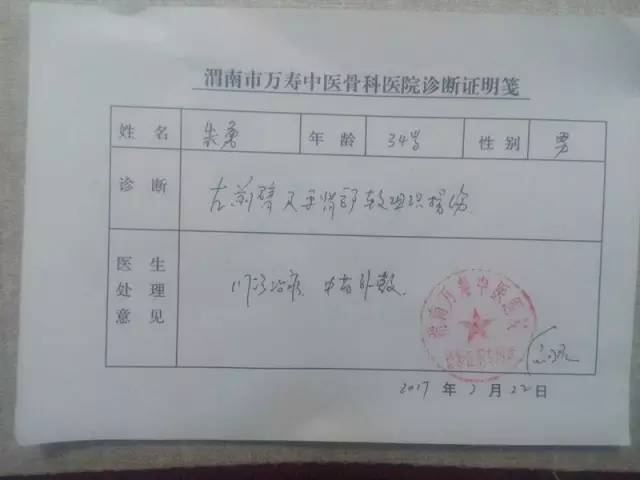 渭南市万寿中医骨科医院诊断证明笺
姓 名 朱勇 年 龄 34岁 性 别 男
诊 断 左前臂及手背部软组织损伤.
医 生
处 理 门诊治疗、中药外敷.
意 见
渭南万寿中医骨科
2017 年 3 月 22 日